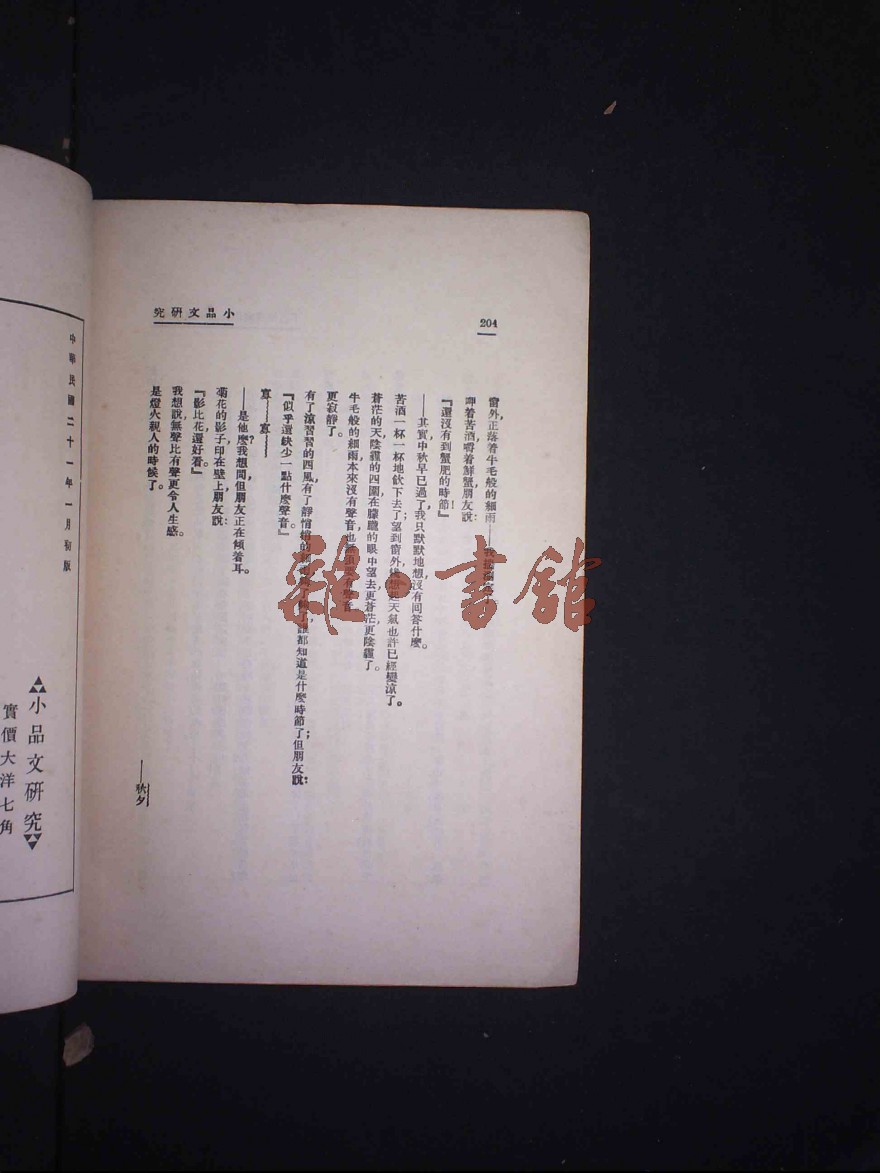 小品文研究
204
窗外正落着牛毛般的細雨——我
呷着苦酒嚼着鮮蟹朋友說:
『還沒有到蟹肥的時節!』
——其實,中秋早已過了,我只默默地想,沒有回答什麼。
苦酒一杯一杯地飲下去了;望到窗外天氣也許已經變涼了。
蒼茫的天,陰霾的四圍,在朦朧的眼中望去,更蒼茫,更陰霾了。
牛毛般的細雨,本來沒有聲音,也無須要有聲音,
更寂靜了。
有了涼習習的西風,有了靜悄悄的誰都知道是什麼時節了;但朋友說:
『似乎還缺少一點什麼聲音。』
寘——寘——
——是他麼?我想問,但朋友正在傾着耳。
菊花的影子印在壁上,朋友說:
『影比花還好看。』
我想說,無聲比有聲更令人生感。
是燈火親人的時候了。
——秋夕
中華民國二十一年一月初版
小品文研究
實價大洋七角
雜·書館